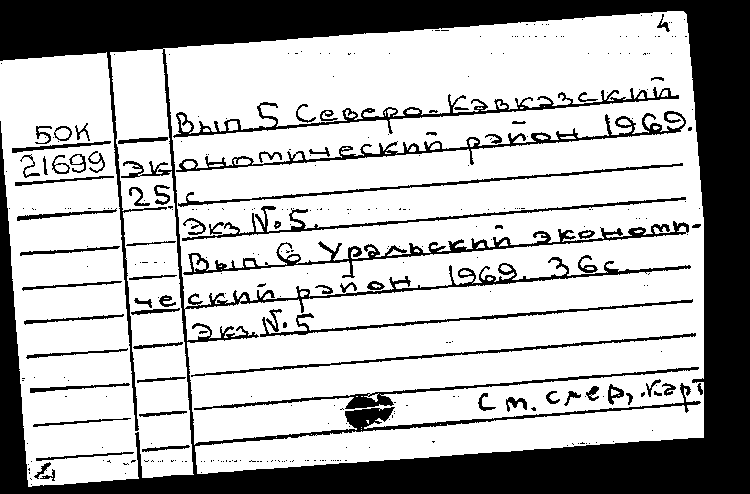 4
Вып. 5 Северо-Кавказский
50К
21699 экономический район. 1969.
25 с
Экз № 5.
Вып. 6. Уральский экономи-
ческий район. 1969. 36с.
Экз. № 5
См. след. карт